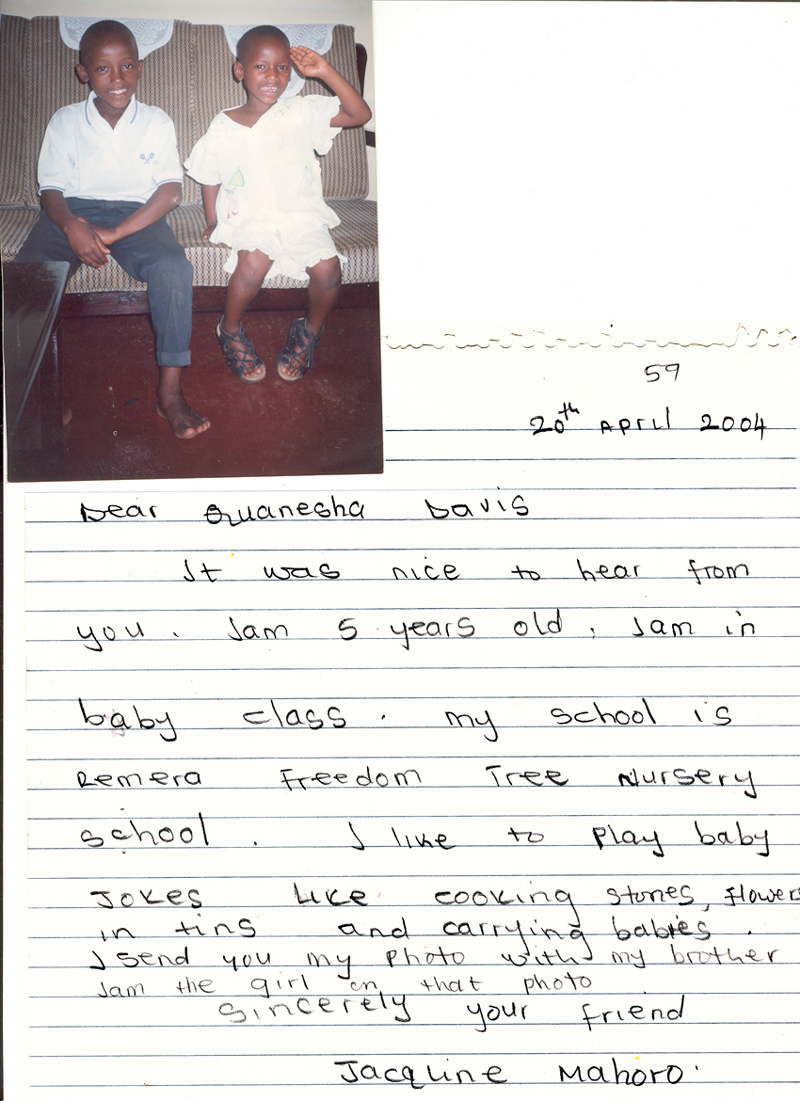 59
20th April 2004
Dear Quanesha Davis
It was nice to hear from
you. I am 5 years old. I am in
baby class. my school is
Remera Freedom Tree Nursery
school. I like to play baby
Jokes like cooking stones, flowers
in tins and carrying babies.
I send you my photo with my brother
I am the girl on that photo
Sincerely your friend
Jacqline Mahoro.